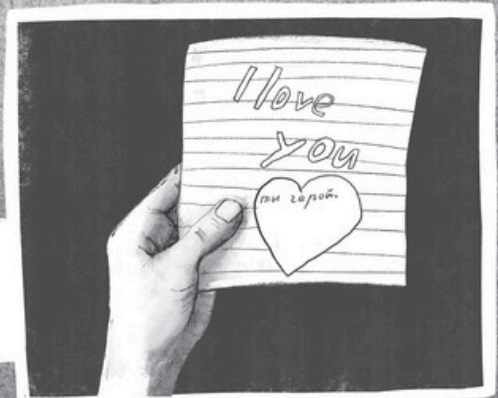 I love
you
ты гарой.